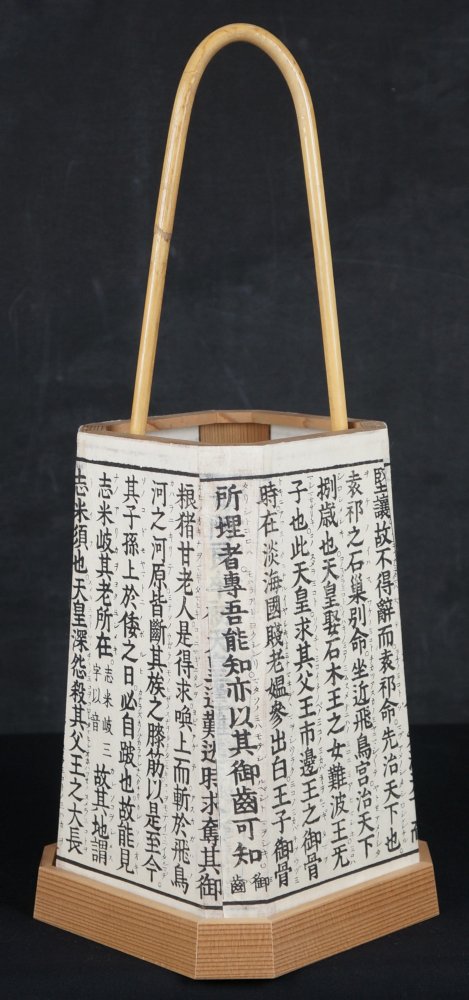 堅讓故不得辭而袁祁命先治天下也
袁祁之石巢別命坐近飛鳥宮治天下
捌歳也天皇娶石木王之女難波王无
子也此天皇求其父王市邊王之御骨
時在淡海國賤老媼參出白王子御骨
所埋者專吾能知亦以其御齒可知 御齒
難逃時求奪其御
粮猪甘老人是得求喚上而斬於飛鳥
河之河原皆斷其族之膝筋以是至今
其子孫上於倭之日必自跛也故能見
志米岐其老所在 志米岐三字以音 故其地謂
志米須也天皇深怨殺其父王之大長